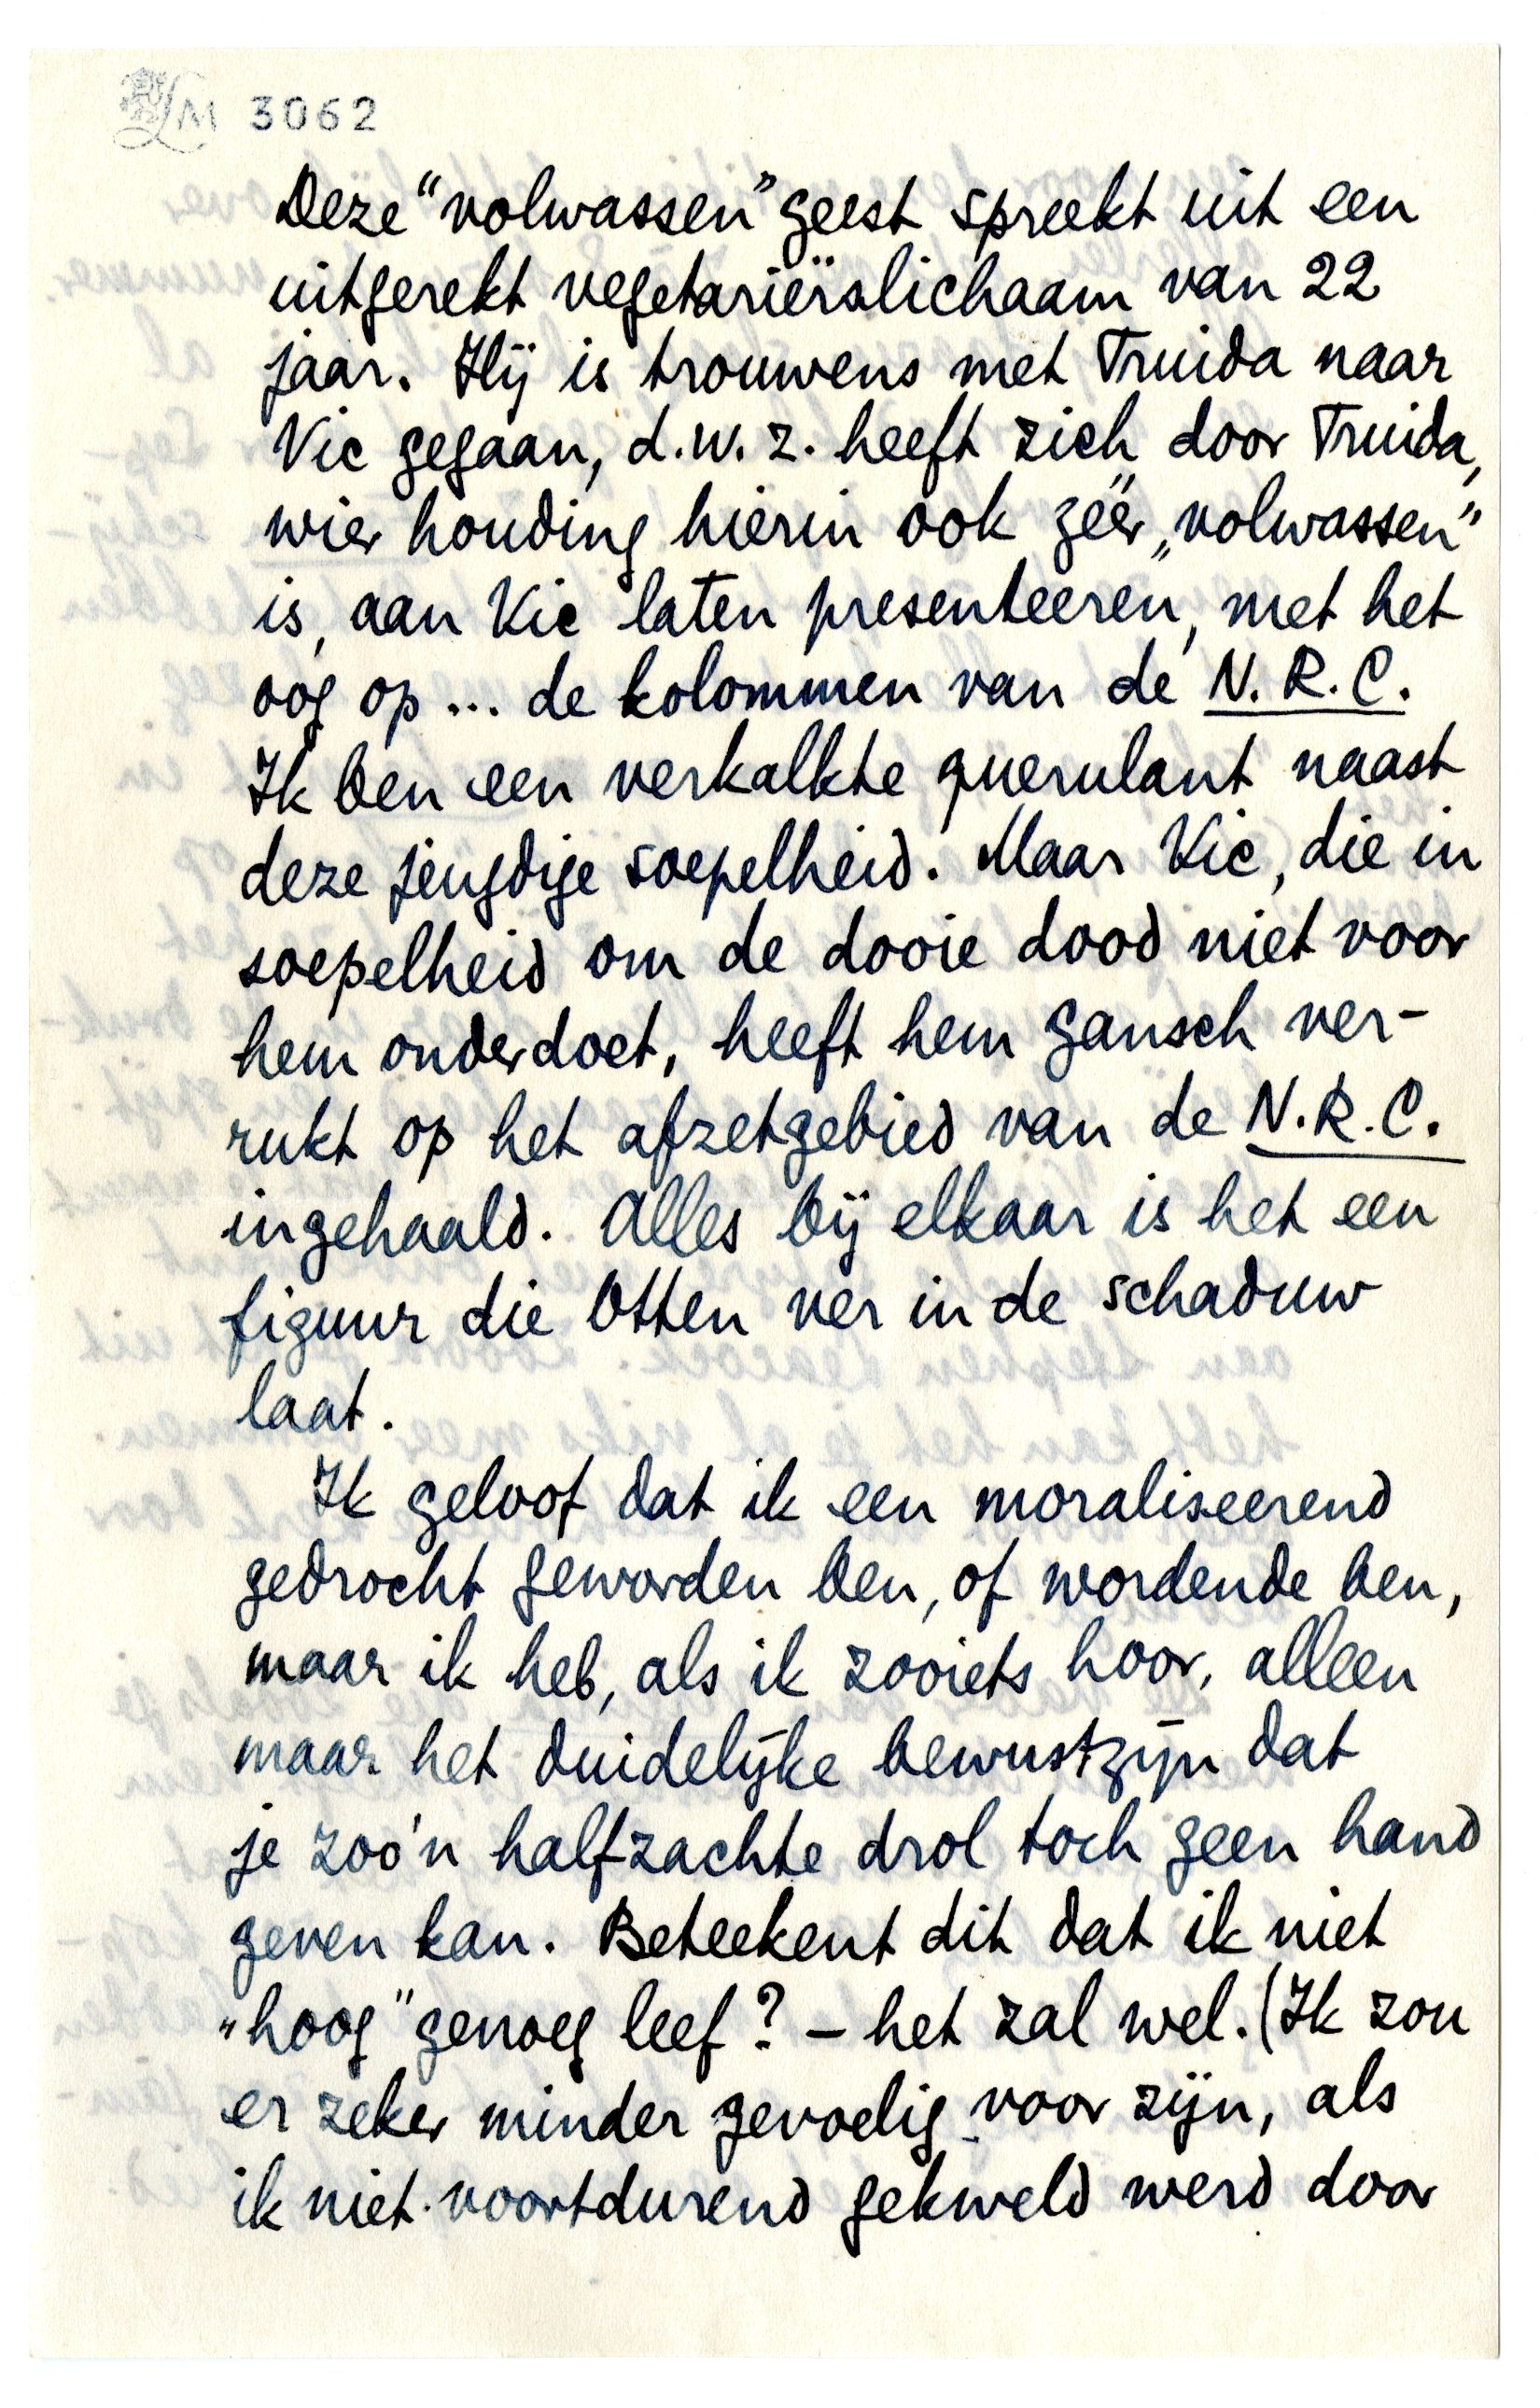 LM 3062
Deze “volwassen” geest spreekt uit een
uitgerekt vegetariërslichaam van 22
jaar. Hij is trouwens met Truida naar
Vic gegaan, d.w.z. heeft zich door Truida,
wier houding hierin ook zéér „volwassen”
is, aan Vic laten presenteeren, met het
oog op ... de kolommen van de N.R.C.
Ik ben een verkalkte querulant naast
deze jeugdige soepelheid. Maar Vic, die in
soepelheid om de dooie dood niet voor
hem onderdoet, heeft hem gansch ver-
rukt op het afzetgebied van de N.R.C.
ingehaald. Alles bij elkaar is het een
figuur die Otten ver in de schaduw
laat.
Ik geloof dat ik een moraliseerend
gedrocht geworden ben, of wordende ben,
maar ik heb, als ik zooiets hoor, alleen
maar het duidelijke bewustzijn dat
je zoo'n halfzachte drol toch geen hand
geven kan. Beteekent dit dat ik niet
„hoog” genoeg leef? – het zal wel. (Ik zou
er zeker minder gevoelig voor zijn, als
ik niet voortdurend gekweld werd door